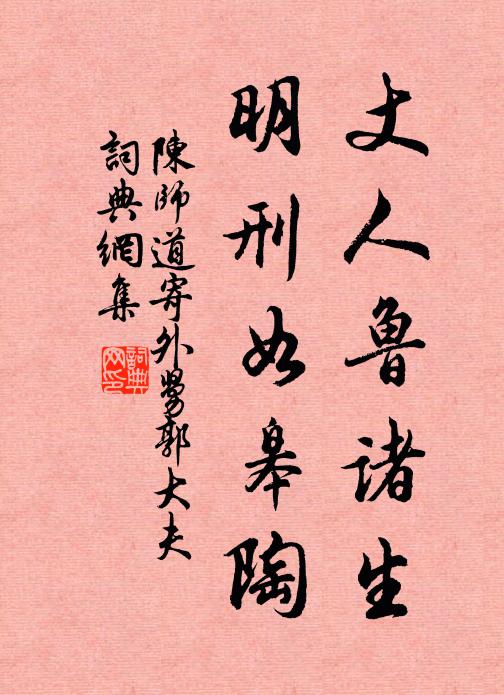 丈人鲁诸生
明刑如皋陶
陳師道寄外舅郭大夫
詞典網集
詞典
网印